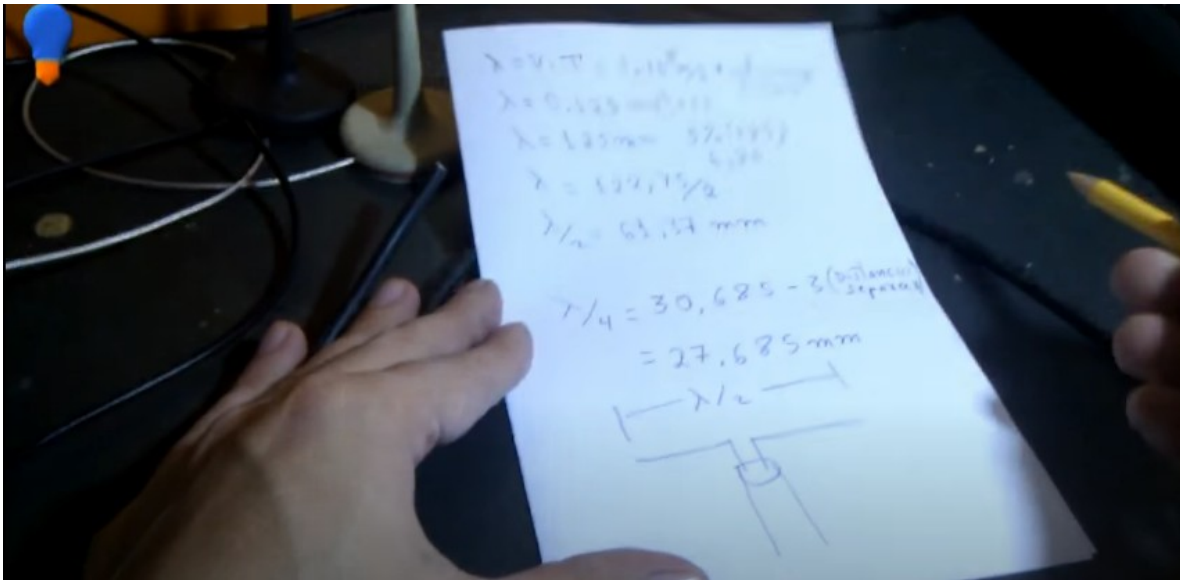 λ = V.T =
λ = 0.125
λ = 125 mm 5% (125)
λ = 122,75/2
λ/2 = 61,37 mm
λ/4 = 30,685 - 3 (Distancia
separación
= 27,685 mm
λ/2